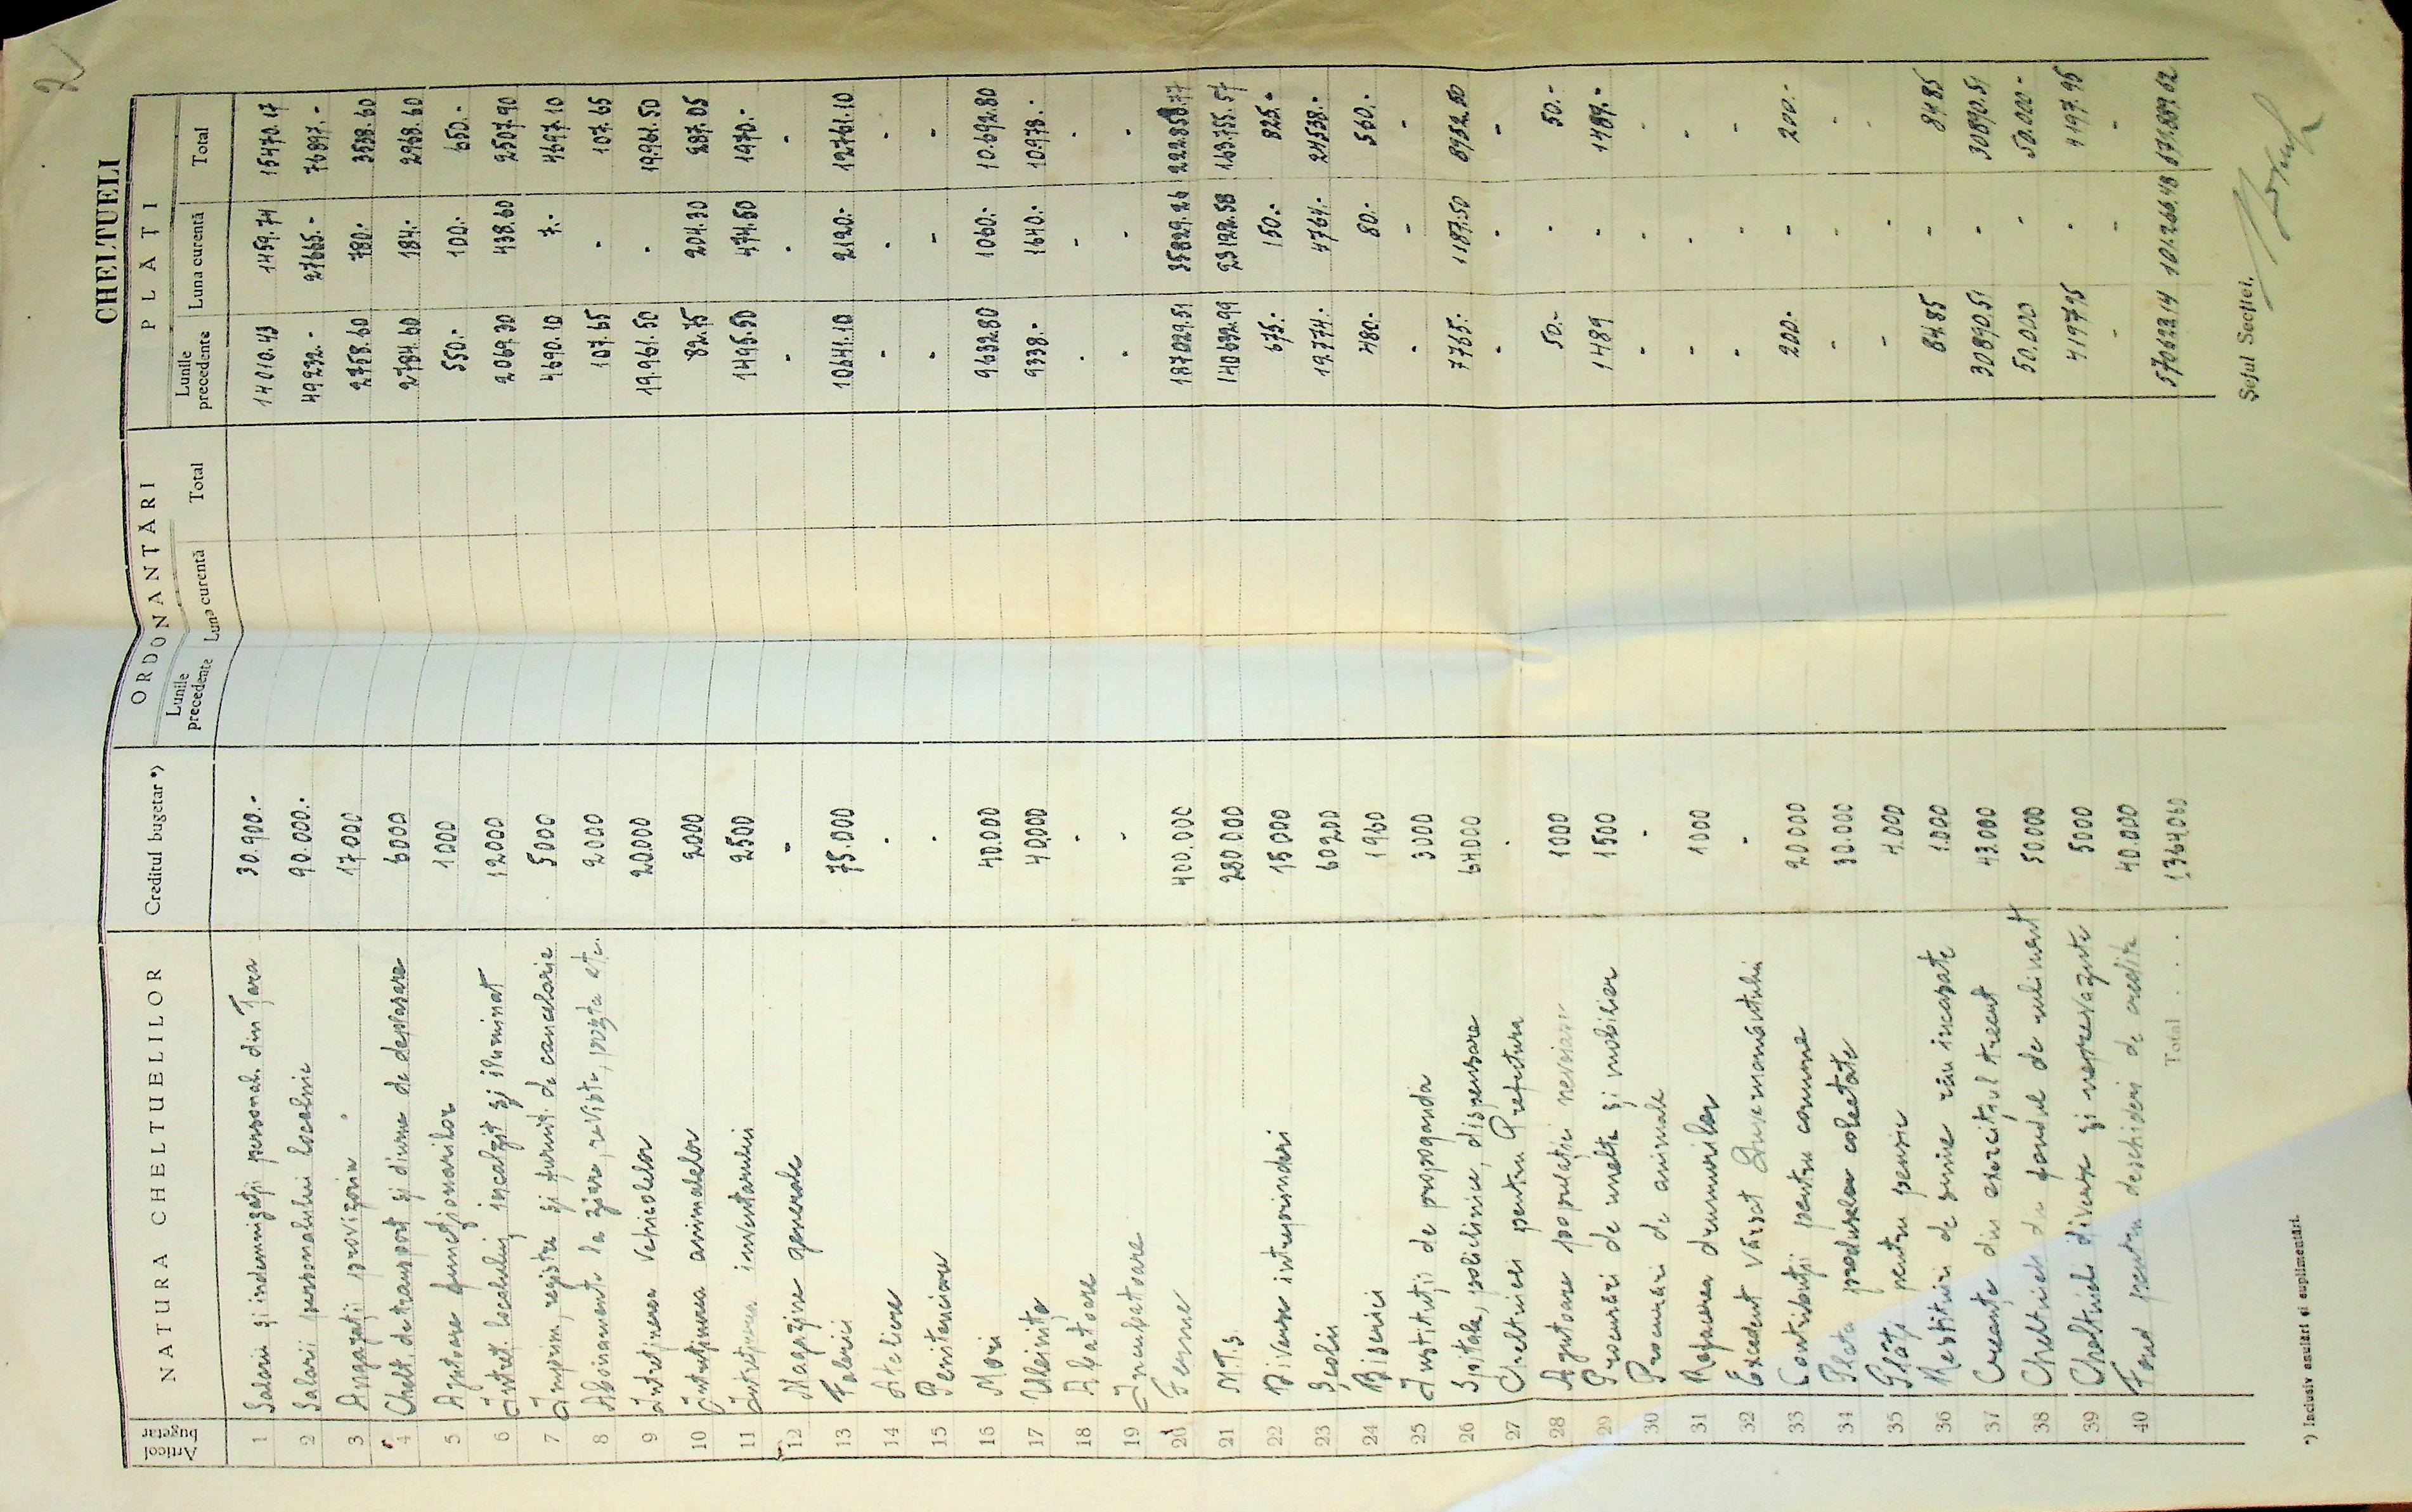 2
CHELTUELI
Articol bugetar | NATURA CHELTUELILOR | Creditul bugetar *) | ORDONANȚĂRI | PLĂȚI
Lunile precedente | Luna curentă | Total | Lunile precedente | Luna curentă | Total
1 Salarii și indemnizații personal. din Țara 30.900.- 14010.43 1459.74 15470.17
2 Salarii personalului localnic 90.000.- 49232.- 27665.- 76897.-
3 Angajații provizoriu 17.000 2758.60 780.- 3538.60
4 Chelt. de transport și diurne de deplasare 6000 2784.60 184.- 2968.60
5 Ajutoare funcționarilor 1000 550.- 100.- 650.-
6 Întreț. localului, incalzit și iluminat 12000 2069.30 438.60 2507.90
7 Imprim, registre și furnit. de cancelarie 5000 4690.10 7.- 4697.10
8 Abonamente la ziare, reviste, poșta etc. 2000 107.65 - 107.65
9 Întreținerea vehicolelor 20.000 19.961.50 - 19.961.50
10 Întreținerea animalelor 2000 82.75 204.30 287.05
11 Întreținerea inventarului 2500 1495.50 474.50 1970.-
12 Magazine generale - - - -
13 Fabrici 75.000 10641.10 2120.- 12761.10
14 Ateliere - - - -
15 Penitenciare - - - -
16 Mori 40.000 9632.80 1060.- 10.692.80
17 Uleinițe 40,000 9338.- 1640.- 10978.-
18 Abatoare - - - -
19 Incubatoare - - - -
20 Ferme 400.000 187029.51 35829.26 222.858.77
21 M.T.S. 280.000 140632.99 23122.58 163.755.57
22 Diverse intreprinderi 15.000 675.- 150.- 825.-
23 Școlii 60200 19.774.- 4764.- 24538.-
24 Biserici 1960 480.- 80.- 560.-
25 Instituții de propoganda 3000 - - -
26 Spitale, policlinice, dispensare 64000 7765.- 1187.50 8952.50
27 Cheltueli pentru Prefectura - - - -
28 Ajutoare populație nevoiașe 1000 50.- - 50.-
29 Procurări de unelte și mobilier 1500 1489 - 1489.-
30 Procurări de animale - - - -
31 Refacerea drumurilor 1000 - - -
32 Excedent vărsat Guvernamântului - - - -
33 Contribuții pentru comune 20.000 200.- - 200.-
34 Plata produselor colectate 30.000 - - -
35 Plăți pentru pensii 4.000 - - -
36 Restituiri de sume rău incasate 1.000 84.85 - 84.85
37 Creanțe din exercițiul trecut 43.000 30890.51 - 30890.51
38 Cheltueli din fondul de rulment 50.000 50.000 - 50.000-
39 Cheltueli diverse și neprevazute 5000 4197.95 - 4197.95
40 Fond pentru deschideri de credite 40.000 - - -
Total . . . 1,364,060 570623.14 101.266.48 671.889.62
Șeful Secției,
*) Inclusiv anulări și suplimentări.